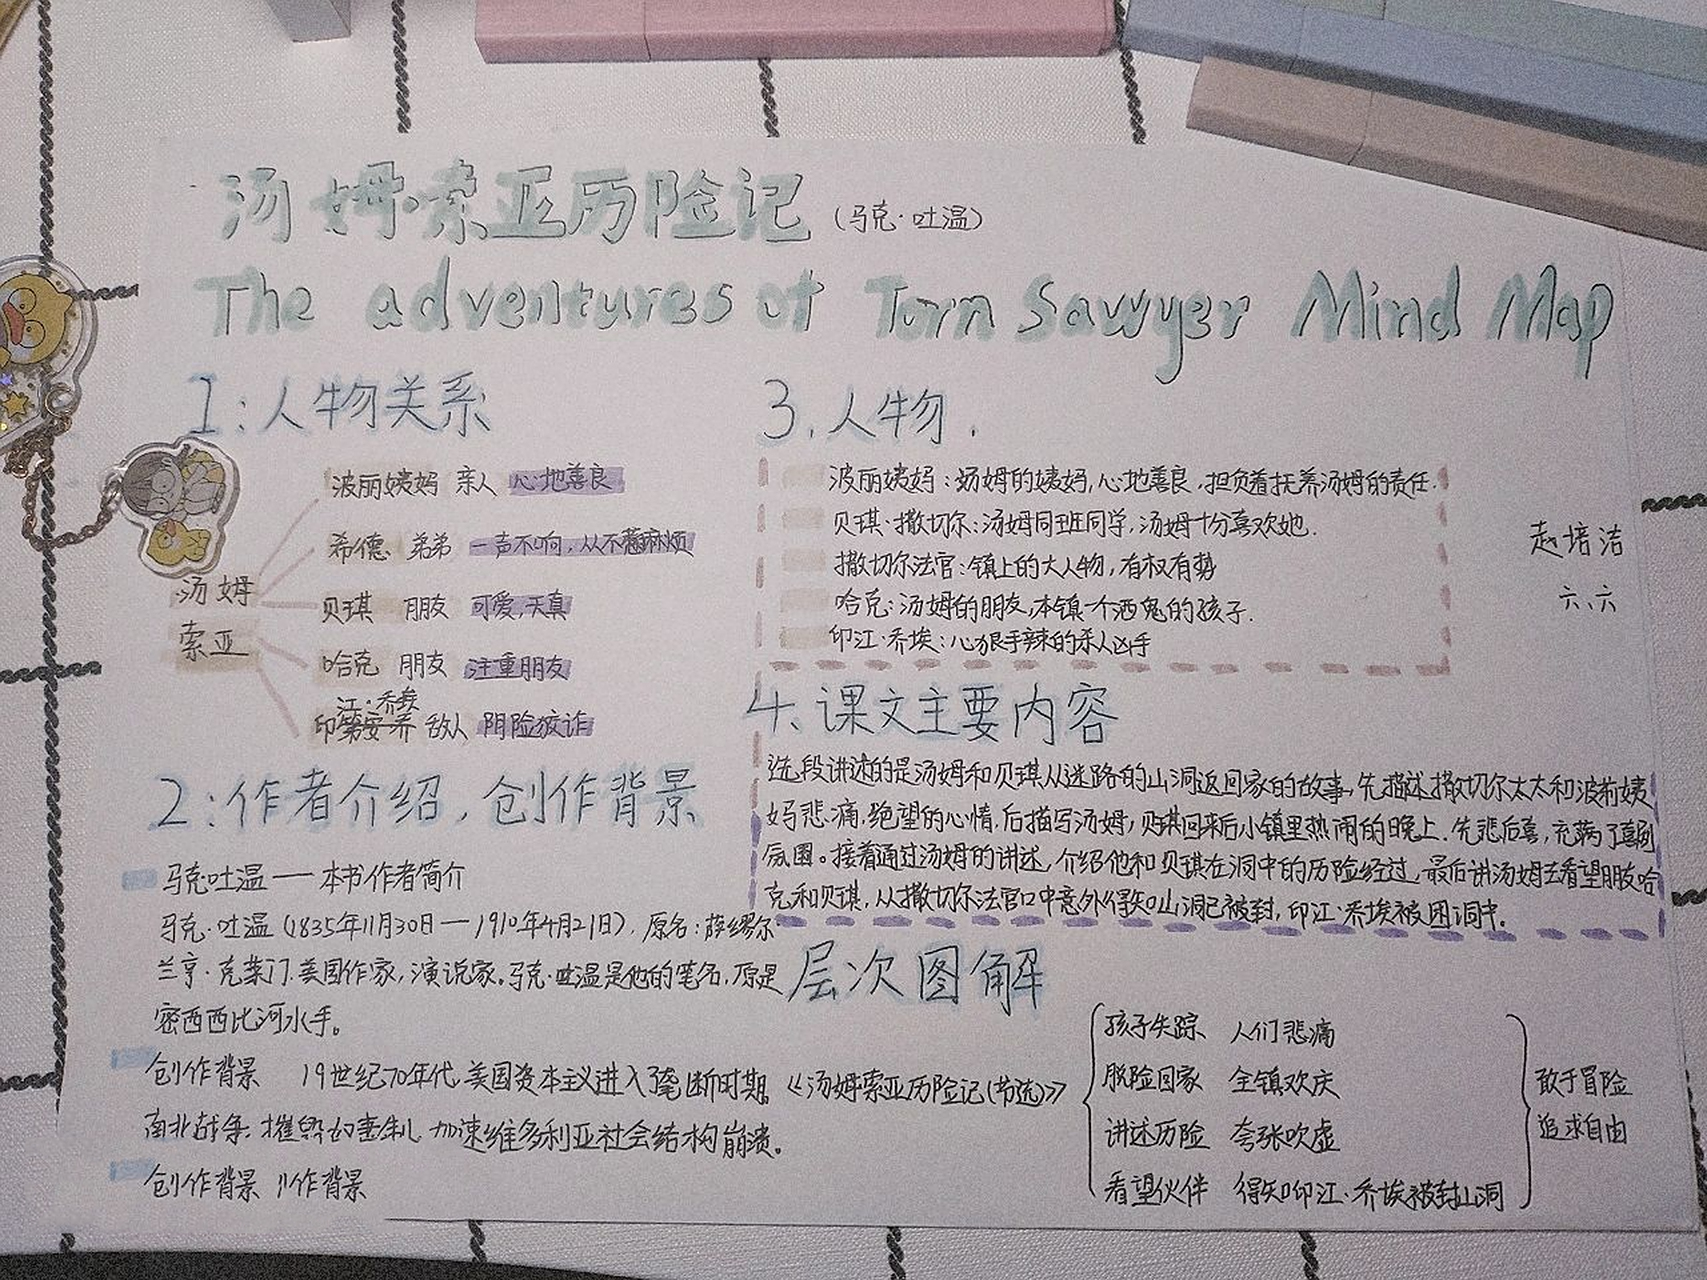 汤姆·索亚历险记(马克·吐温)
The adventures of Tom Sawyer Mind Map
1:人物关系
汤姆
索亚
波丽姨妈 亲人 心地善良
希德 弟弟 一声不响,从不惹麻烦
贝琪 朋友 可爱,天真
哈克 朋友 注重朋友
江·乔埃
印第安乔 敌人 阴险狡诈
2:作者介绍,创作背景
马克·吐温——本书作者简介
马克·吐温(1835年11月30日—1910年4月21日),原名:萨缪尔
兰亨·克莱门,美国作家,演说家。马克·吐温是他的笔名,原是
密西西比河水手。
创作背景 19世纪70年代,美国资本主义进入了垄断时期,
南北战争,摧毁奴隶制,加速维多利亚社会结构崩溃。
创作背景 川作背景
3.人物.
波丽姨妈:汤姆的姨妈,心地善良,担负着抚养汤姆的责任.
贝琪·撒切尔:汤姆同班同学,汤姆十分喜欢她.
撒切尔法官:镇上的大人物,有权有势
哈克:汤姆的朋友,本镇一个酒鬼的孩子.
印江·乔埃:心狠手辣的杀人凶手
赵培洁
六、六
4、课文主要内容
选段讲述的是汤姆和贝琪从迷路的山洞返回家的故事,先描述撒切尔太太和波莉姨
妈悲痛,绝望的心情,后描写汤姆,贝琪回来后小镇里热闹的晚上,先悲后喜,充满了喜剧
氛围。接着通过汤姆的讲述,介绍他和贝琪在洞中的历险经过,最后讲汤姆去看望朋友哈
克和贝琪,从撒切尔法官口中意外得知山洞已被封,印江·乔埃被困洞中。
层次图解
《汤姆索亚历险记(节选)》
孩子失踪 人们悲痛
脱险回家 全镇欢庆
讲述历险 夸张吹虚
看望伙伴 得知印江·乔埃被封山洞
敢于冒险
追求自由